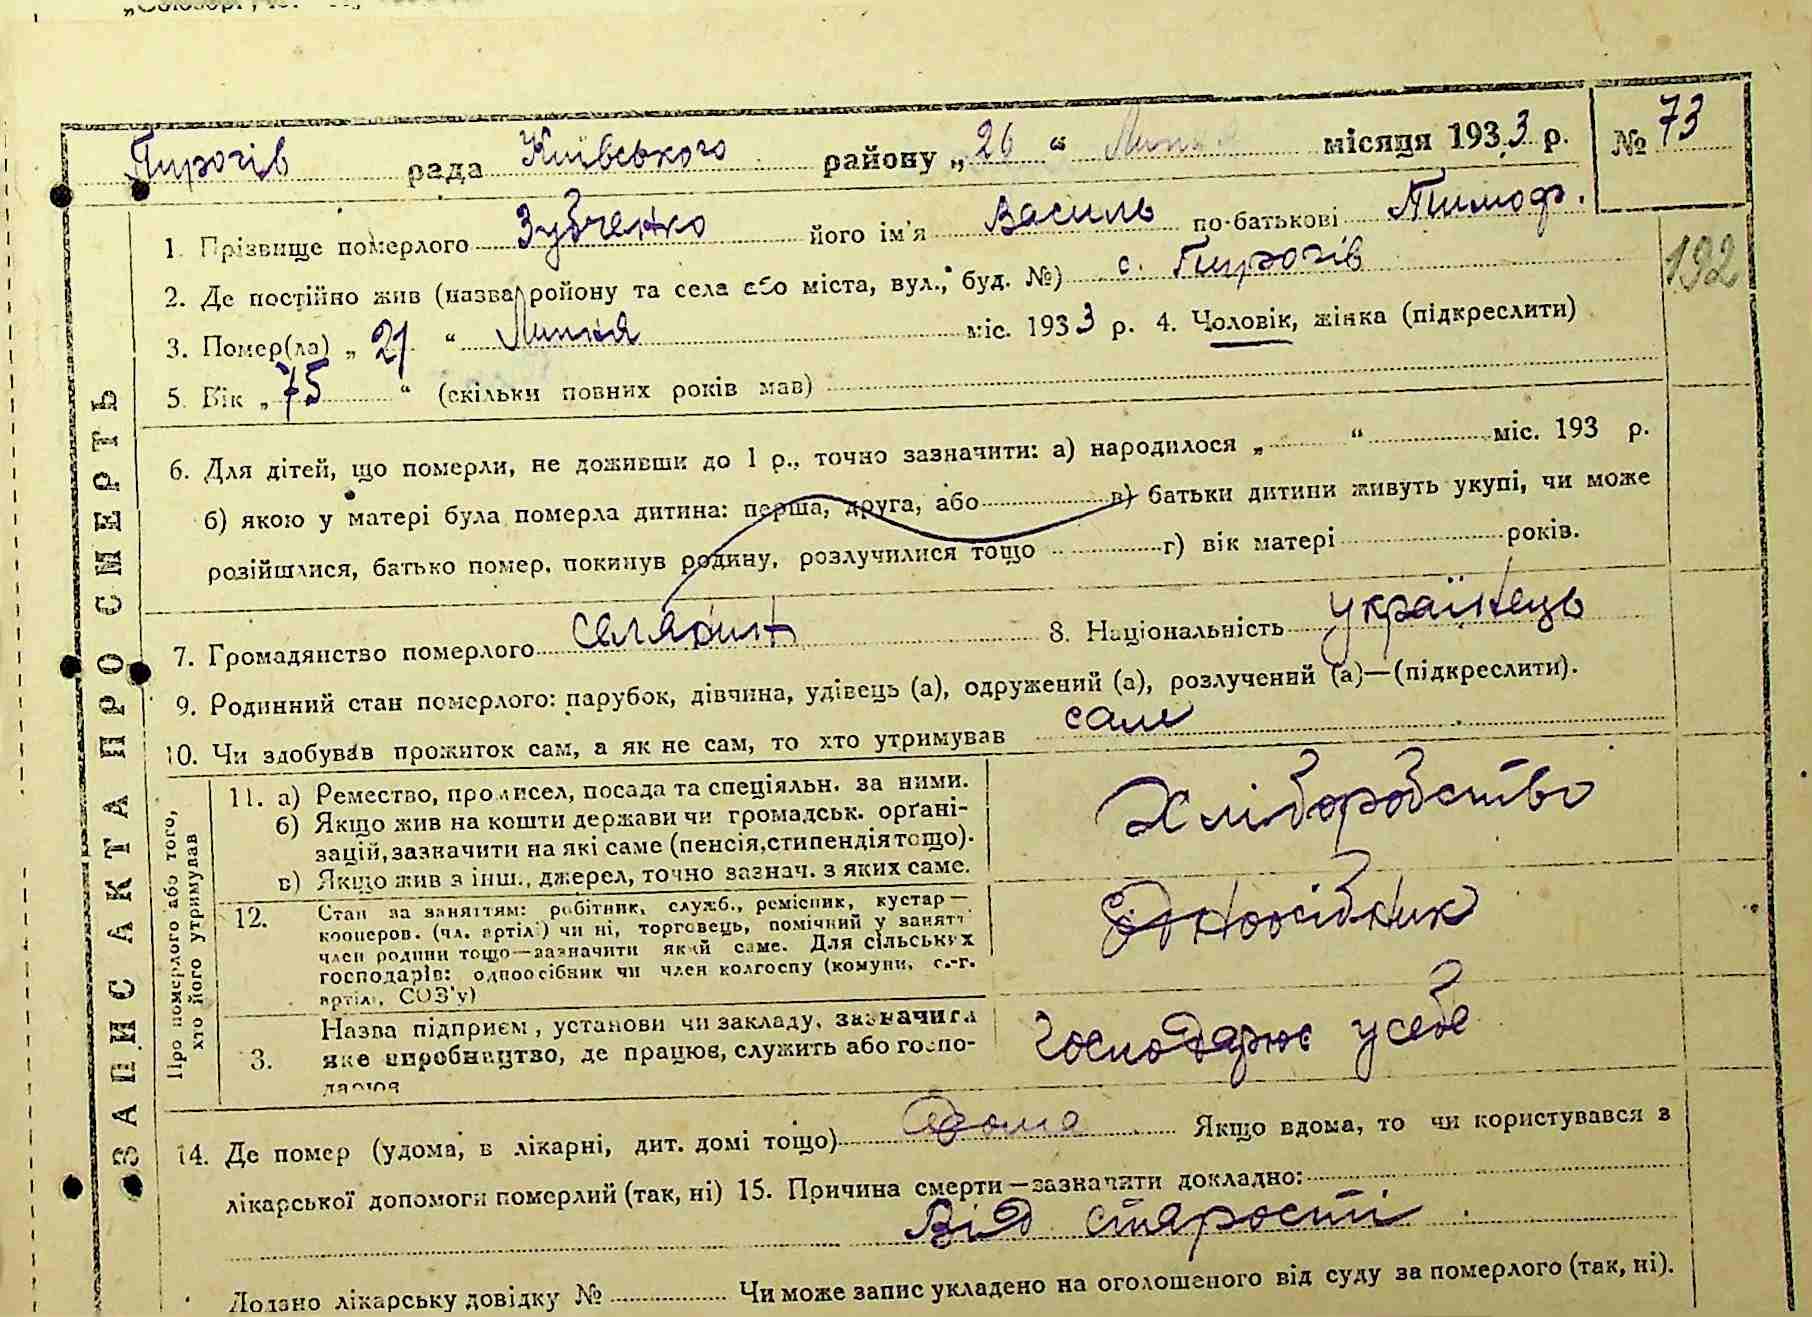 Пирогів рада Київського району „26“ Липня місяця 1933 р. № 73
1. Прізвище померлого Зубченко його ім'я Василь по-батькові Тимоф.
192
2. Де постійно жив (назва ройону та села або міста, вул., буд. №) с. Пирогів
3. Помер(ла) „21“ Липня міс. 1933 р. 4. Чоловік, жінка (підкреслити)
5. Вік „75“ (скільки повних років мав)
6. Для дітей, що померли, не доживши до 1 р., точно зазначити: а) народилося „ “ міс. 193 р.
б) якою у матері була померла дитина: перша, друга, або в) батьки дитини живуть укупі, чи може
розійшлися, батько помер, покинув родину, розлучилися тощо г) вік матері років.
7. Громадянство померлого селянин 8. Національність українець
9. Родинний стан померлого: парубок, дівчина, удівець (а), одружений (а), розлучений (а)—(підкреслити).
10. Чи здобував прожиток сам, а як не сам, то хто утримував сам
ЗАПИС АКТА ПРО СМЕРТЬ
Про померлого або того,
хто його утримував
11. а) Ремество, промисел, посада та спеціяльн. за ними.
б) Якщо жив на кошти держави чи громадськ. орґані-
зацій, зазначити на які саме (пенсія, стипендія тощо).
в) Якщо жив з інш., джерел, точно зазнач. з яких саме.
Хліборобство
12. Стан за заняттям: робітник, служб., ремісник, кустар—
кооперов. (чл. артілі) чи ні, торговець, помічний у занятт.
член родини тощо—зазначити який саме. Для сільських
господарів: одноосібник чи член колгоспу (комуни, с.-г.
артілі, СОЗ'у)
Одноосібник
3. Назва підприєм, установи чи закладу, зазначити
яке виробництво, де працює, служить або госпо-
дарює
Господарює у себе
14. Де помер (удома, в лікарні, дит. домі тощо) вдома Якщо вдома, то чи користувався з
лікарської допомоги померлий (так, ні) 15. Причина смерти—зазначити докладно:
Від старости
Додано лікарську довідку № Чи може запис укладено на оголошеного від суду за померлого (так, ні).